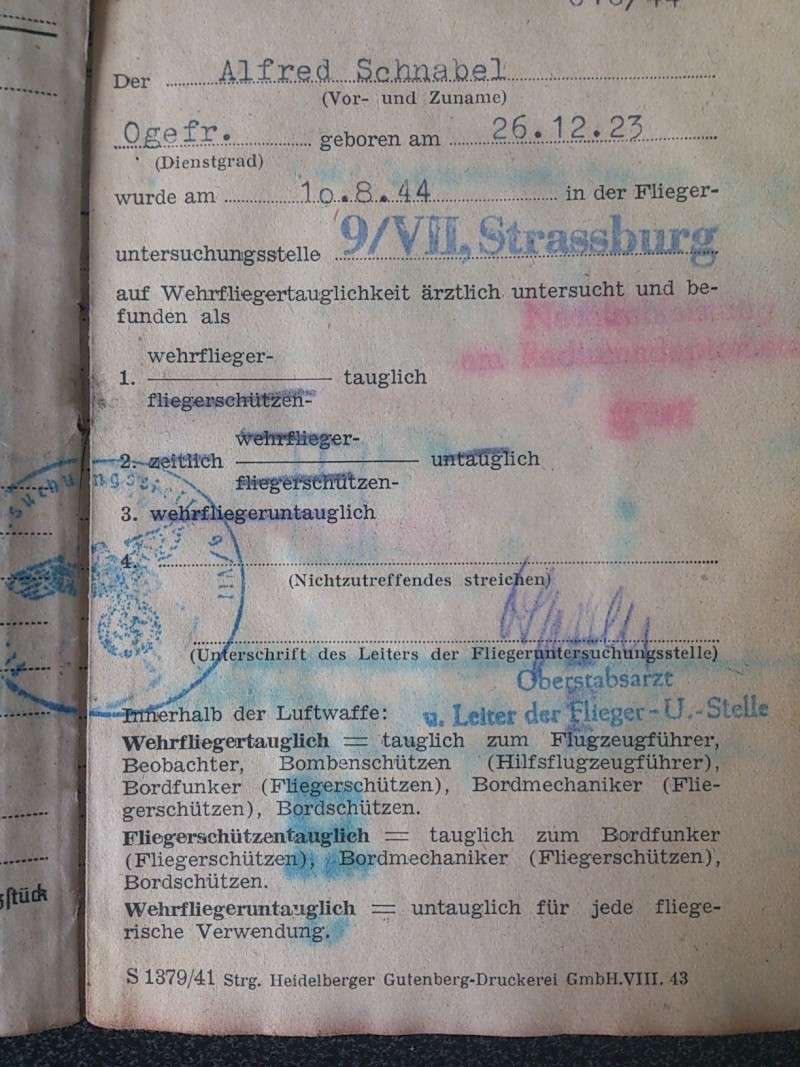 Der Alfred Schnabel
(Vor- und Zuname)
Ogefr. geboren am 26.12.23
(Dienstgrad)
wurde am 10.8.44 in der Flieger-
untersuchungsstelle 9/VII, Strassburg
auf Wehrfliegertauglichkeit ärztlich untersucht und be-
funden als
wehrflieger-
1. tauglich
fliegerschützen-
wehrflieger-
2. zeitlich untauglich
fliegerschützen-
3. wehrfliegeruntauglich
4.
(Nichtzutreffendes streichen)
(Unterschrift des Leiters der Fliegeruntersuchungsstelle)
Oberstabsarzt
u. Leiter der Flieger-U.-Stelle
Innerhalb der Luftwaffe:
Wehrfliegertauglich = tauglich zum Flugzeugführer,
Beobachter, Bombenschützen (Hilfsflugzeugführer),
Bordfunker (Fliegerschützen), Bordmechaniker (Flie-
gerschützen), Bordschützen.
Fliegerschützentauglich = tauglich zum Bordfunker
(Fliegerschützen), Bordmechaniker (Fliegerschützen),
Bordschützen.
Wehrfliegeruntauglich = untauglich für jede fliege-
rische Verwendung.
S 1379/41 Strg. Heidelberger Gutenberg-Druckerei GmbH. VIII. 43